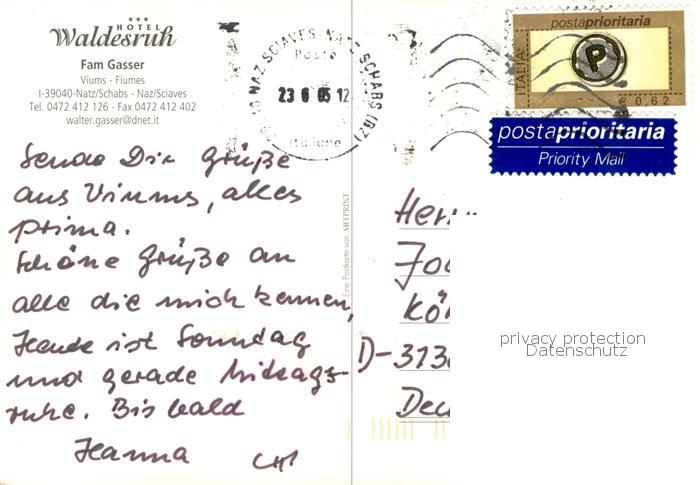 HOTEL
Waldesruh
Fam Gasser
Viums - Fiumes
I-39040-Natz/Schabs - Naz/Sciaves
Tel. 0472 412 126 - Fax 0472 412 402
walter.gasser@dnet.it
NAZ/SCIAVES-NATZ/SCHABS (BZ)
Poste
23 6 05 12
Italiane
postaprioritaria
ITALIA
P
€ 0,62
postaprioritaria
Priority Mail
Sende Dir Grüße
aus Viums, alles
prima.
Schöne Grüße an
alle die mich kennen,
Heute ist Sonntag
und gerade Mittags-
ruhe. Bis bald
Hanna
Eine Postkarte von ARTPRINT
Herr
Jo
Kön
D-313
Deu
privacy protection
Datenschutz